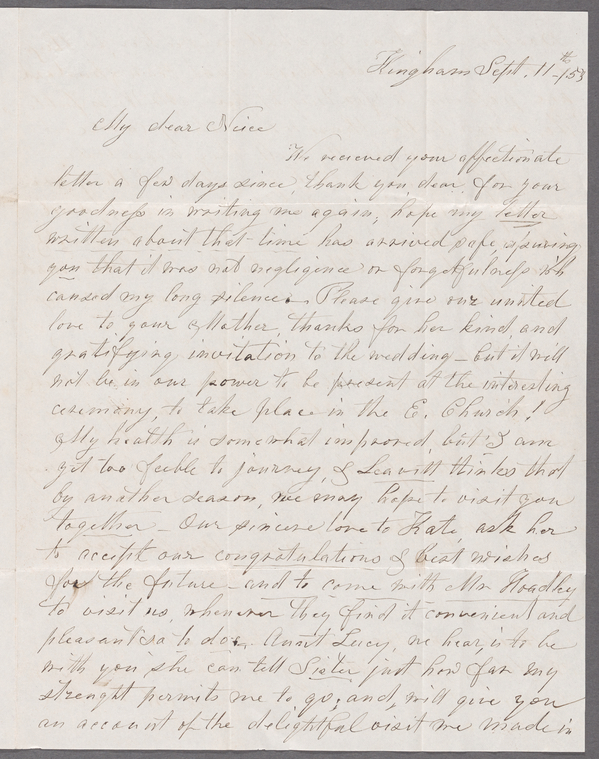 Hingham Sept. 11th - /53
My dear Neice
We recieved your affectionate
letter a few days since, thank you dear, for your
goodness in writing me again, hope my letter
written about that time has arrived safe, assuring
you that it was not negligence or forgetfulness wh
caused my long silence. Please give our united
love to your Mother, thanks for her kind and
gratifying invitation to the wedding - but it will
not be, in our power to be present at the interesting
ceremony, to take place in the E. Church!
My health is somewhat improved, but I am
yet too feeble to journey, & Leavitt thinks that
by another season, we may hope to visit you
together - Our sincere love to Kate, ask her
to accept our congratulations & best wishes
for the future - and to come with Mr Hoadley
to visit us, whenever they find it convenient and
pleasant so to do. Aunt Lucy, we hear, is to be
with you she can tell Sister just how far my
strenght permits me to go, and, will give you
an account of the delightful visit we made in